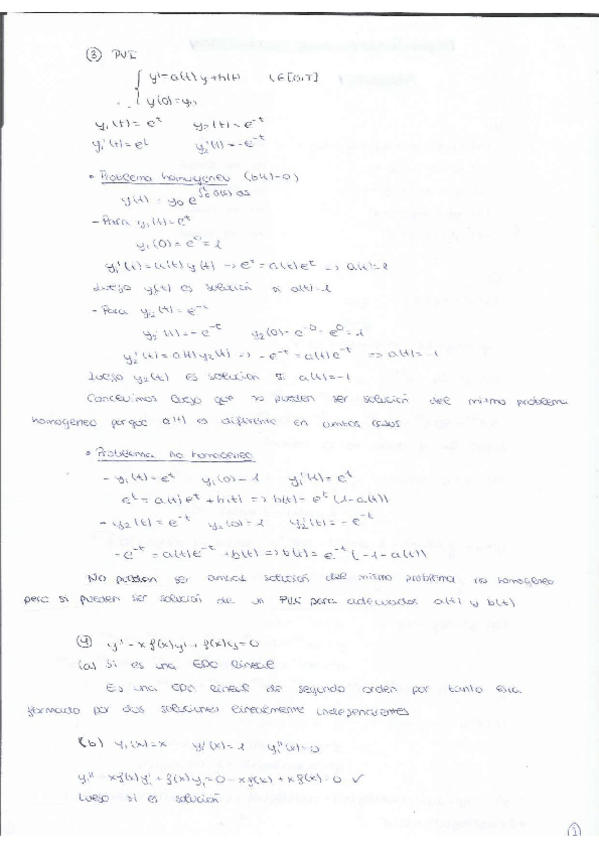 ③ PVI
y' = a(t) y + b(t)    t ∈ [0,T]
y(0) = y₀
y₁(t) = e^t    y₂(t) = e^-t
y₁'(t) = e^t    y₂'(t) = -e^-t
• Problema homogeneo (b(t)=0)
y(t) = y₀ e^∫₀ᵗ a(s) ds
- Para y₁(t) = e^t
y₁(0) = e^0 = 1
y₁'(t) = a(t) y(t) → e^t = a(t) e^t ⇒ a(t) = 1
Luego y₁(t) es solución si a(t)=1
- Para y₂(t) = e^-t
y₂'(t) = -e^-t    y₂(0) = e^-0 = e^0 = 1
y₂'(t) = a(t) y₂(t) ⇒ -e^-t = a(t) e^-t ⇒ a(t) = -1
Luego y₂(t) es solución si a(t) = -1
Concluimos luego que no pueden ser solución del mismo problema
homogeneo porque a(t) es diferente en ambos casos
• Problema no homogeneo
- y₁(t) = e^t    y₁(0) = 1    y₁'(t) = e^t
e^t = a(t) e^t + b(t) ⇒ b(t) = e^t (1-a(t))
- y₂(t) = e^-t    y₂(0) = 1    y₂'(t) = -e^-t
-e^-t = a(t) e^-t + b(t) ⇒ b(t) = e^-t (-1-a(t))
No pueden ser ambas solución del mismo problema no homogeneo
pero si pueden ser solución de un PVI para adecuados a(t) y b(t)
④ y'' - x f(x) y' + f(x) y = 0
(a) Si es una EDO lineal
Es una EDO lineal de segundo orden por tanto esta
formado por dos soluciones linealmente independientes
(b) y₁(x) = x    y₁'(x) = 1    y₁''(x) = 0
y₁'' - x f(x) y₁' + f(x) y₁ = 0 - x f(x) + x f(x) = 0 ✓
Luego si es solución
①